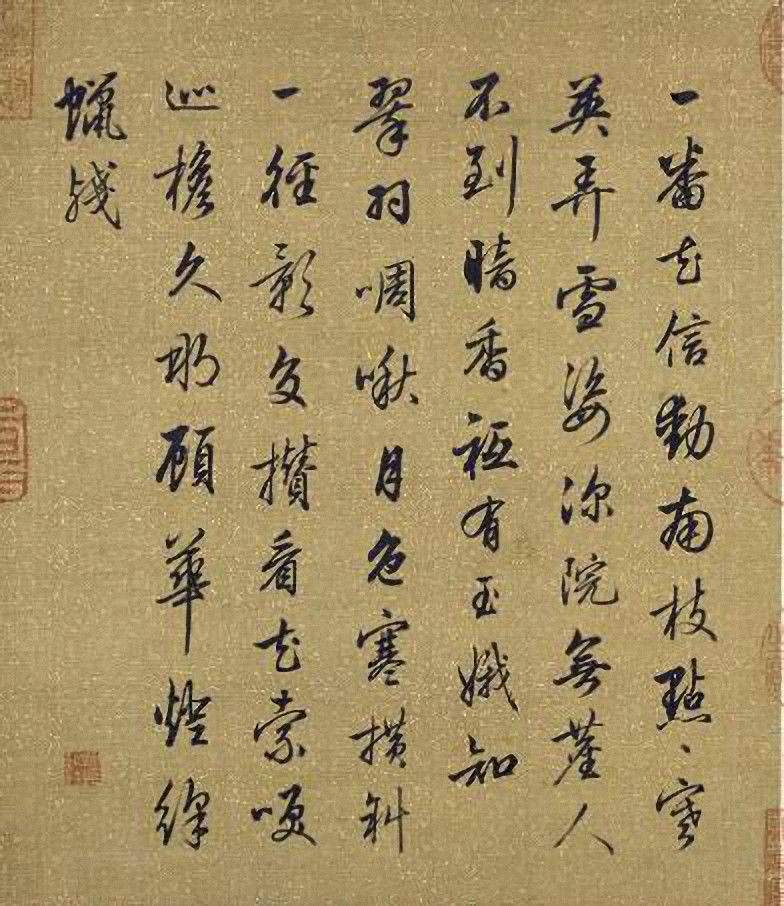 一番花信動南枝點〻寒
英弄雪姿深院無塵人
不到暗香祗有玉娥知
翠羽啁啾月色寒橫斜
一徑影交攢看花索咲
巡檐久那顧華燈絳
蠟殘